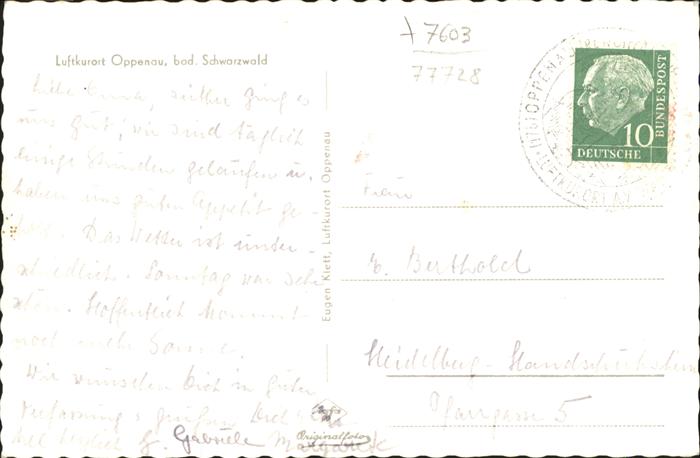 Luftkurort Oppenau, bad. Schwarzwald
7603
77728
Liebe Oma, seither ging es
uns gut, wir sind täglich
einige Stunden gelaufen u.
haben uns guten Appetit ge-
holt. Das Wetter ist unter-
schiedlich. Sonntag war sehr
schön. Hoffentlich kommt
noch mehr Sonne.
Wir wünschen Dich in guter
Verfassung u. grüßen Dich
herzlich Gabriele Margarete
Eugen Klett, Luftkurort Oppenau
Originalfoto
OPPENAU
LUFTKURORT
10
DEUTSCHE
BUNDESPOST
Frau
E. Berthold
Heidelberg-Handschuhsheim
Pfarrgasse 5